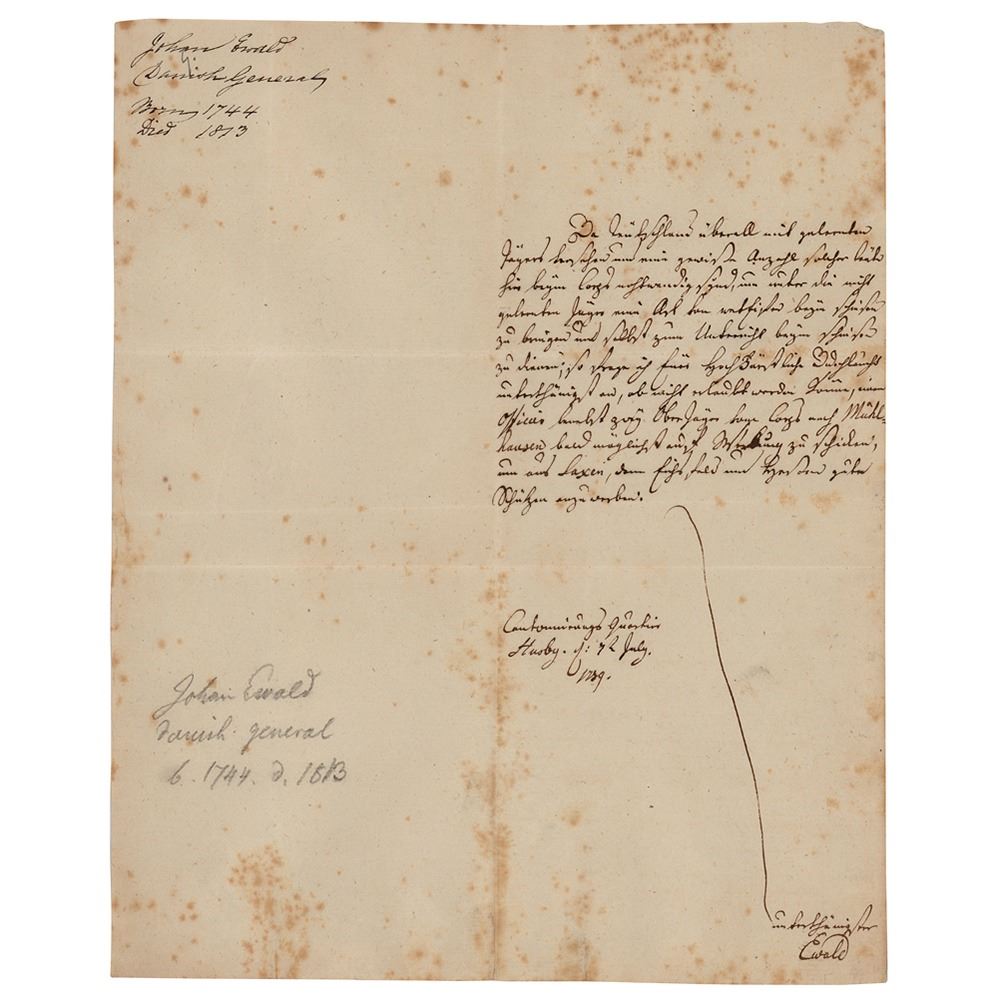 Johan Ewald
Danish General
Born 1744
Died 1813
Da Teutschland überall mit gelernten
Jägers versehen und eine gewisse Anzahl solcher Leute
hier beym Corps nothwendig sind, um unter die nicht
gelernten Jäger eine Art von beym schiesen
zu bringen und selbst zum Unterricht beym schiesen
zu dienen; so frage ich Euer HochFürstliche Durchlaucht
unterthänigst an, ob nicht erlaubt werden könne, einen
Officier benebst zwey Oberjäger vom Corps nach Mühl-
hausen bald möglichst auf Werbung zu schicken,
um aus Saxen, dem Eichsfeld und Hessen gute
Schützen anzuwerben.
Cantonnirungs Quartier
Husby. d: July.
Johan Ewald
danish general
b. 1744. d. 1813
unterthänigster
Ewald